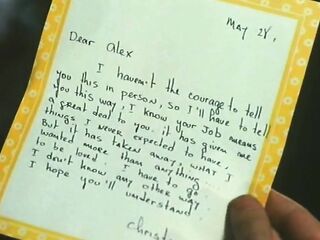 May 28,
Dear Alex
I haven't the courage to tell
you this in person, so I'll have to tell
you this way, I know your Job means
a great deal to you. it has given me
things I never expected to have.
But it has taken away, what I
wanted more than anything
to be loved. I have to go
I don't know any other way
I hope you'll understand